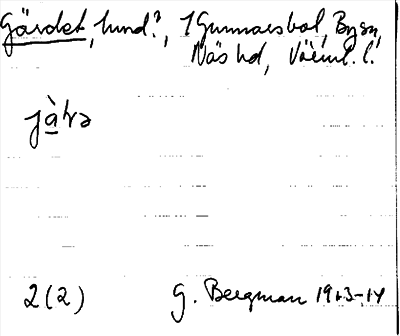 Gärdet, hmd?, 1 Gunnarsbol, By sn,
Näs hd, Värml. l.
jàl̥ə
2(2) G. Bergman 1913-14